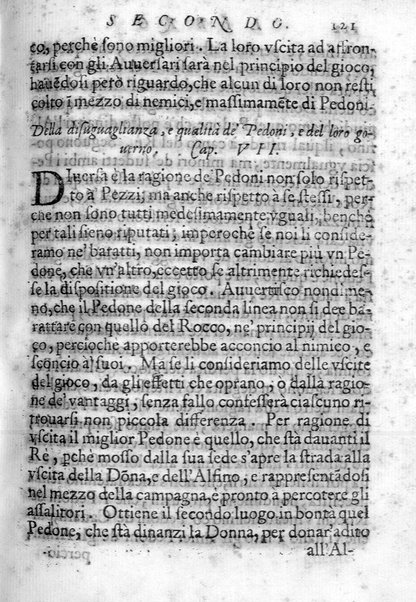 SECONDO. 121
co, perche sono migliori. La loro vscita ad affron-
tarsi con gli Auuersari sarà nel principio del gioco,
hauēdosi però riguardo, che alcun di loro non resti
colto ī mezzo di nemici, e massimamēte di Pedoni.
Della disuguaglianza, e qualità de' Pedoni, e del loro go-
uerno, Cap. VII.
DIuersa è la ragione de' Pedoni non solo rispet-
to à Pezzi; ma anche rispetto à se stessi, per-
che non sono tutti medesimamente vguasi, benche
per tali sieno riputati; imperoche se noi li conside-
ramo ne' baratti, non importa cambiare più vn Pe-
done, che vn'altro, eccetto se altrimente richiedes-
se la dispositione del gioco. Auuertisco nondime-
no, che il Pedone della seconda linea non si dee ba-
rattare con quello del Rocco, ne' principij del gio-
co, percioche apporterebbe acconcio al nimico, e
sconcio a' suoi. Ma se li consideriamo delle vscite
del gioco, da gli effetti che oprano; o dalla ragio-
ne de' vantaggi, senza fallo confesserà ciascuno ri-
trouarsi non piccola differenza. Per ragione di
vscita il miglior Pedone è quello, che stà dauanti il
Rè, pche mosso dalla sua sede s'apre la strada alla
vscita della Dōna, e dell'Alfino, e rappresentādosi
nel mezzo della campagna, è pronto a percotere gli
assalitori. Ottiene il secondo luogo in bontà quel
Pedone, che stà dinanzi la Donna, per donar'adito
all'Al-